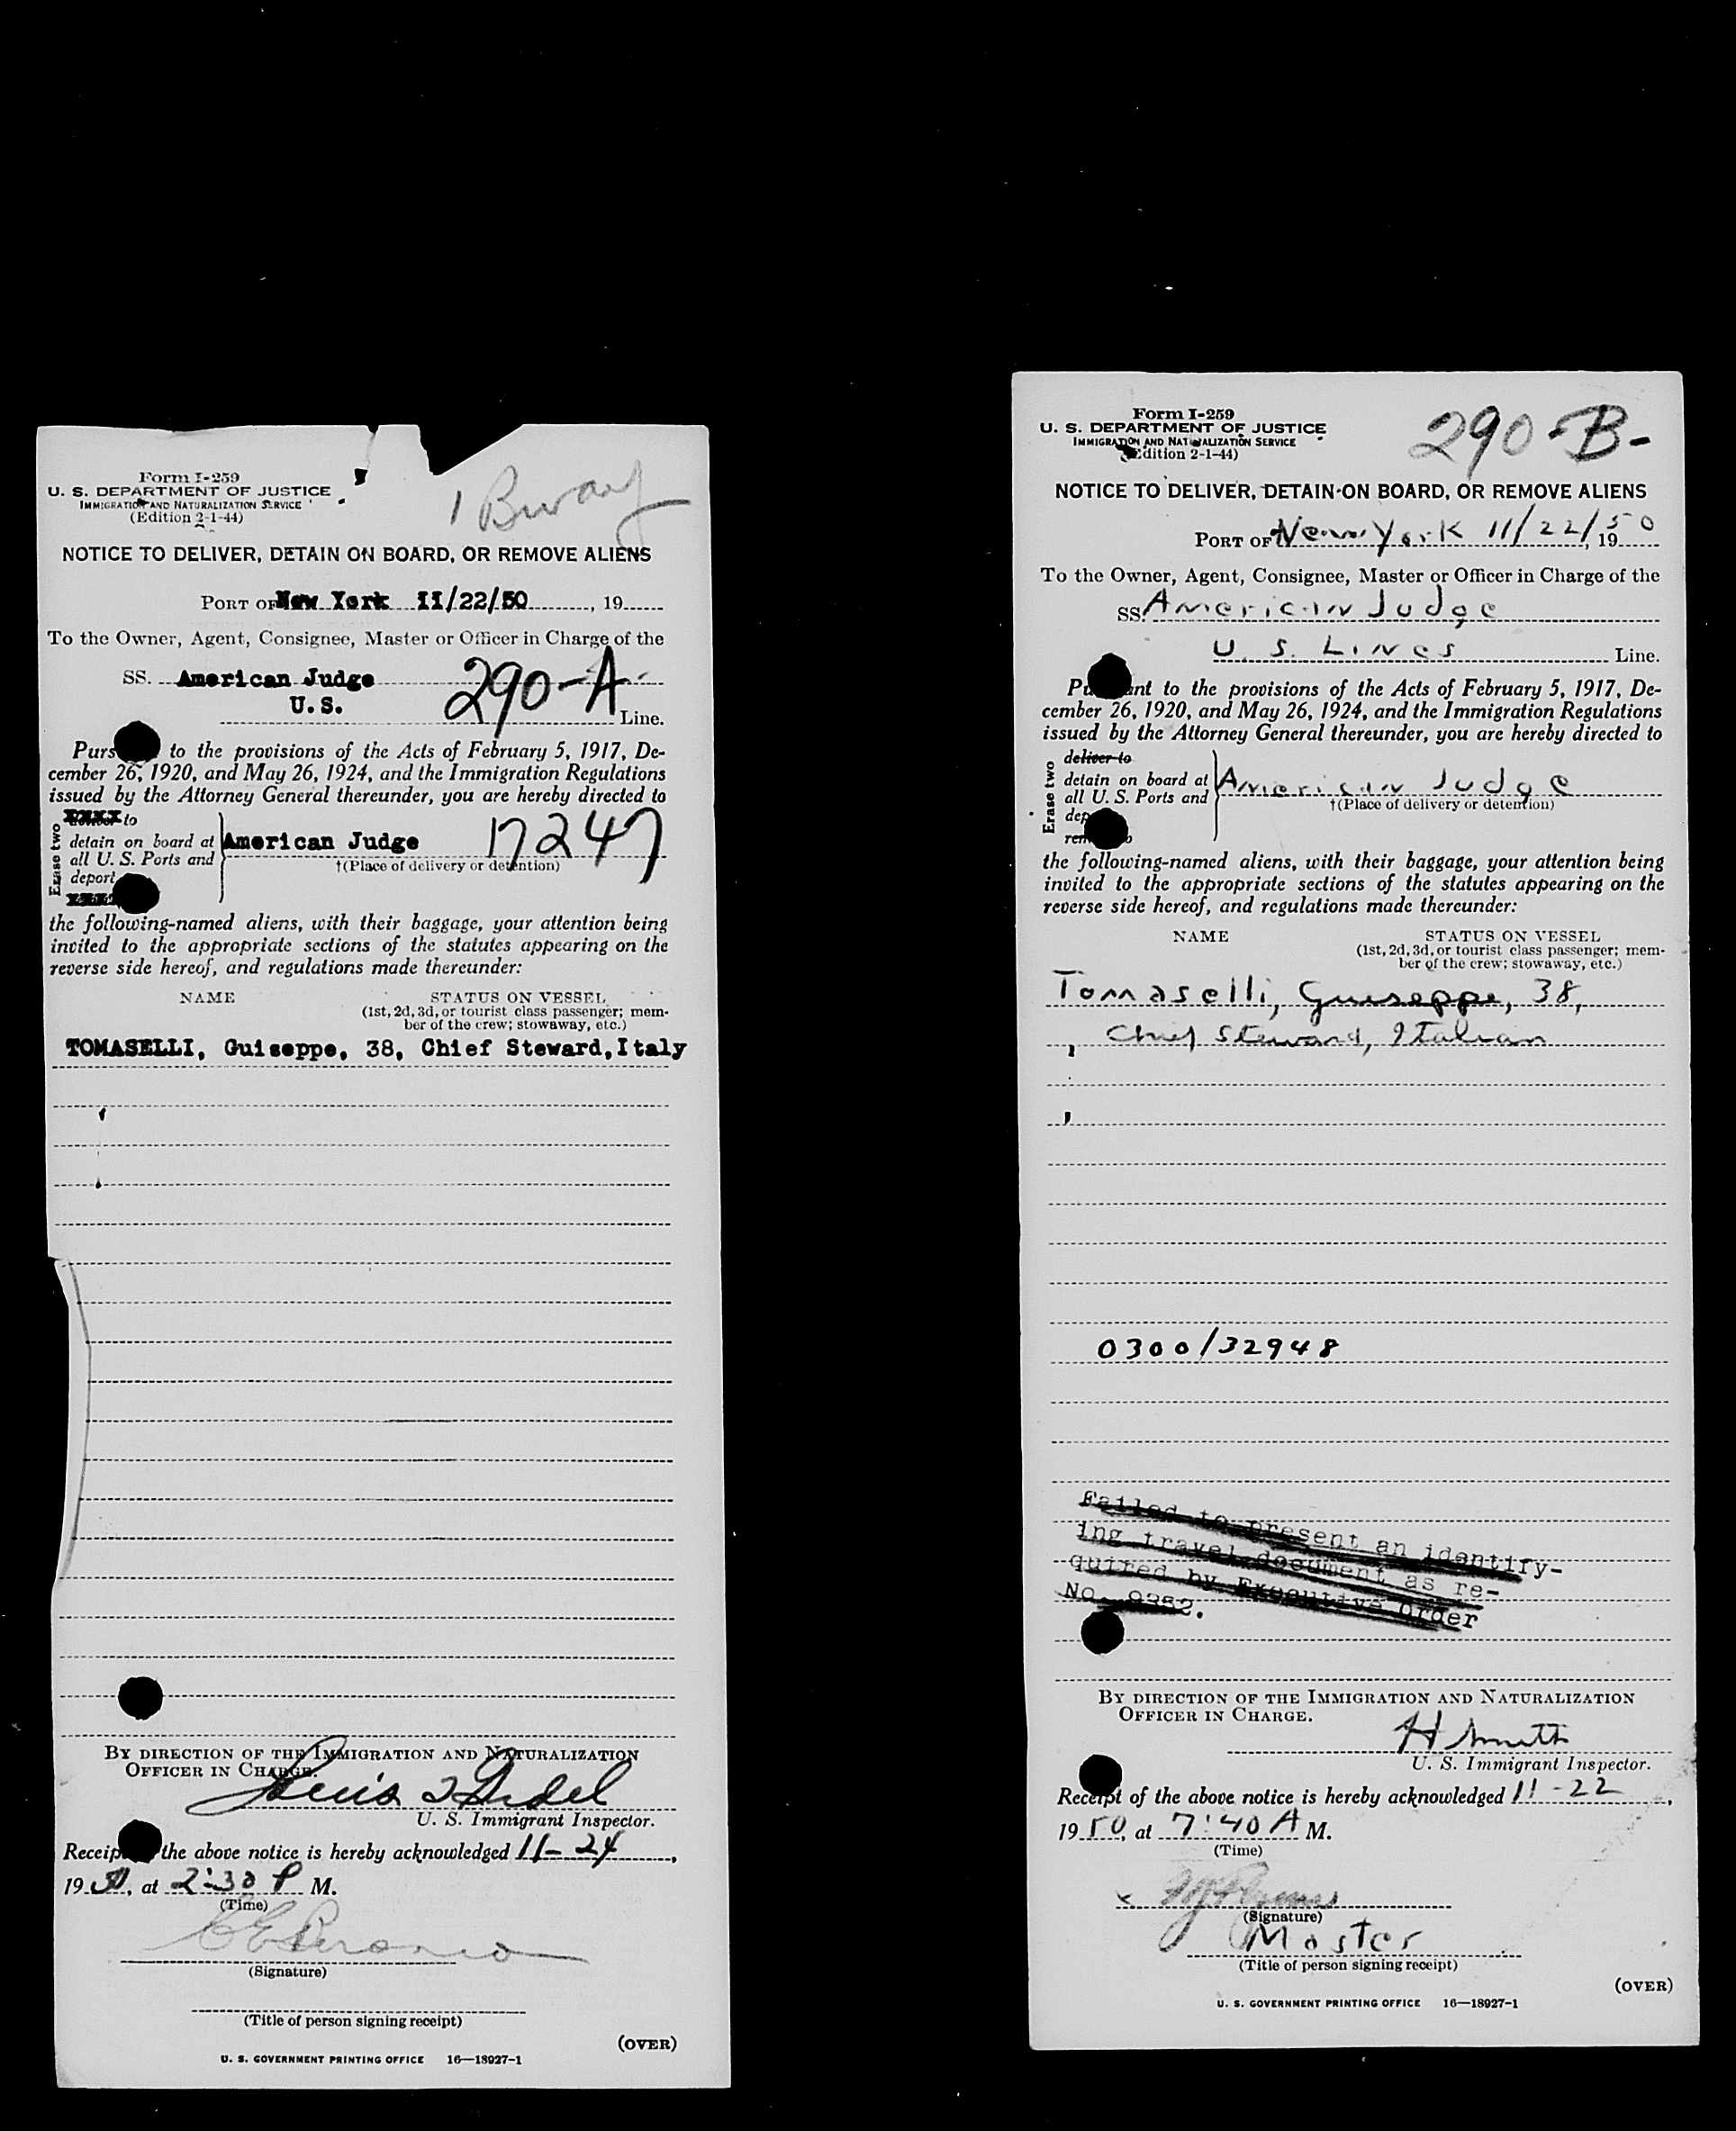 Form I-259
U. S. DEPARTMENT OF JUSTICE
IMMIGRATION AND NATURALIZATION SERVICE
(Edition 2-1-44)
1 Bway
NOTICE TO DELIVER, DETAIN ON BOARD, OR REMOVE ALIENS
PORT OF New York 11/22/50, 19
To the Owner, Agent, Consignee, Master or Officer in Charge of the
SS. American Judge
290-A
U.S. Line.
Purs to the provisions of the Acts of February 5, 1917, De-
cember 26, 1920, and May 26, 1924, and the Immigration Regulations
issued by the Attorney General thereunder, you are hereby directed to
Erase two
to
detain on board at
all U. S. Ports and
deport
American Judge 17247
†(Place of delivery or detention)
the following-named aliens, with their baggage, your attention being
invited to the appropriate sections of the statutes appearing on the
reverse side hereof, and regulations made thereunder:
NAME STATUS ON VESSEL
(1st, 2d, 3d, or tourist class passenger; mem-
ber of the crew; stowaway, etc.)
TOMASELLI, Guiseppe, 38, Chief Steward, Italy
BY DIRECTION OF THE IMMIGRATION AND NATURALIZATION
OFFICER IN CHARGE.
Louis
U. S. Immigrant Inspector.
Receip the above notice is hereby acknowledged 11-24,
19 50, at 2:30 P M.
(Time)
(Signature)
(Title of person signing receipt)
(OVER)
U. S. GOVERNMENT PRINTING OFFICE 16—18927-1
Form I-259
U. S. DEPARTMENT OF JUSTICE
IMMIGRATION AND NATURALIZATION SERVICE
(Edition 2-1-44)
290-B-
NOTICE TO DELIVER, DETAIN ON BOARD, OR REMOVE ALIENS
PORT OF New York 11/22/50, 19
To the Owner, Agent, Consignee, Master or Officer in Charge of the
SS. American Judge
U. S. Lines Line.
Pu ant to the provisions of the Acts of February 5, 1917, De-
cember 26, 1920, and May 26, 1924, and the Immigration Regulations
issued by the Attorney General thereunder, you are hereby directed to
Erase two
deliver to
detain on board at
all U. S. Ports and
dep
rem o
American Judge
†(Place of delivery or detention)
the following-named aliens, with their baggage, your attention being
invited to the appropriate sections of the statutes appearing on the
reverse side hereof, and regulations made thereunder:
NAME STATUS ON VESSEL
(1st, 2d, 3d, or tourist class passenger; mem-
ber of the crew; stowaway, etc.)
Tomaselli, Guiseppe, 38,
Chief Steward, Italian
0300/32948
Failed to present an identify-
ing travel document as re-
quired by Executive Order
No. 9352.
BY DIRECTION OF THE IMMIGRATION AND NATURALIZATION
OFFICER IN CHARGE.
H Smith
U. S. Immigrant Inspector.
Receipt of the above notice is hereby acknowledged 11-22,
19 50, at 7:40 A M.
(Time)
x
(Signature)
Master
(Title of person signing receipt)
(OVER)
U. S. GOVERNMENT PRINTING OFFICE 16—18927-1